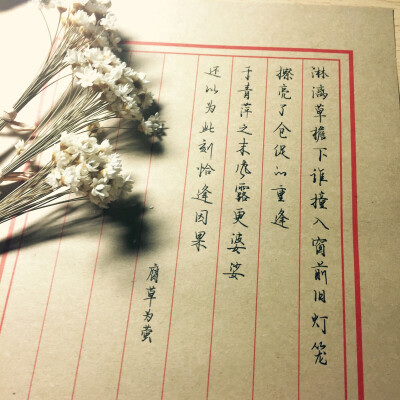 淋漓草檐下谁撞入窗前旧灯笼
擦亮了仓促的重逢
于青萍之末露更婆娑
还以为此刻恰逢因果
腐草为萤